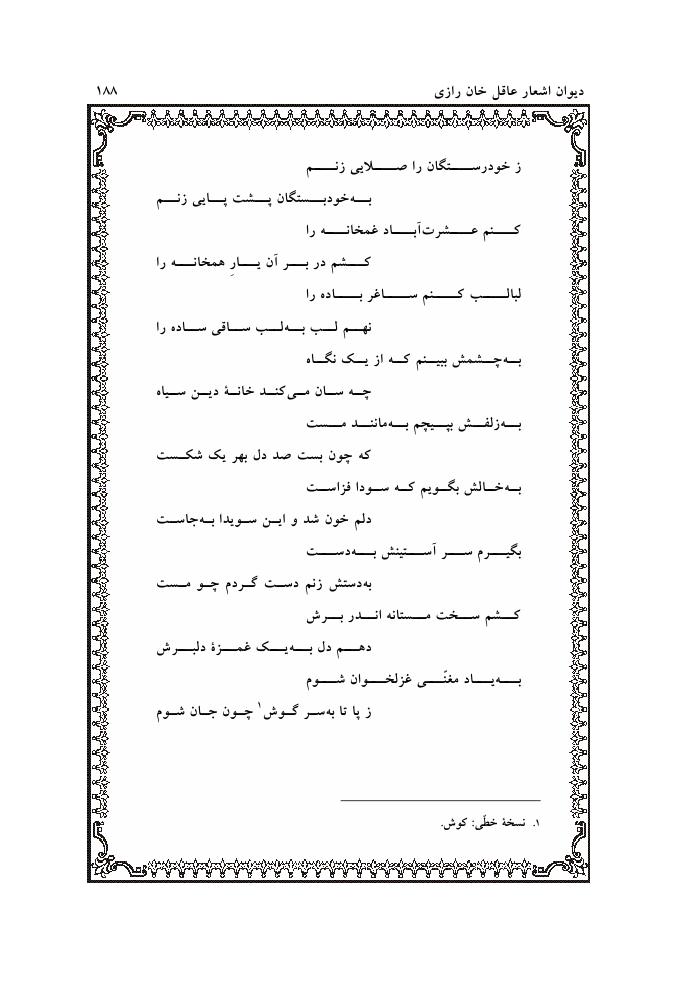 دیوان اشعار عاقل خان رازی ۱۸۸
ز خودرستگان را صلایی زنم
به‌خودبستگان پشت پایی زنم
کنم عشرت‌آباد غمخانه را
کشم در بر آن یارِ همخانه را
لبالب کنم ساغر باده را
نهم لب به‌لب ساقی ساده را
به‌چشمش ببینم که از یک نگاه
چه سان می‌کند خانهٔ دین سیاه
به‌زلفش بپیچم به‌مانند مست
که چون بست صد دل بهر یک شکست
به‌خالش بگویم که سودا فزاست
دلم خون شد و این سویدا به‌جاست
بگیرم سر آستینش به‌دست
به‌دستش زنم دست گردم چو مست
کشم سخت مستانه اندر برش
دهم دل به‌یک غمزهٔ دلبرش
به‌یاد مغنّی غزلخوان شوم
ز پا تا به‌سر گوش۱ چون جان شوم
۱. نسخهٔ خطّی: کوش.